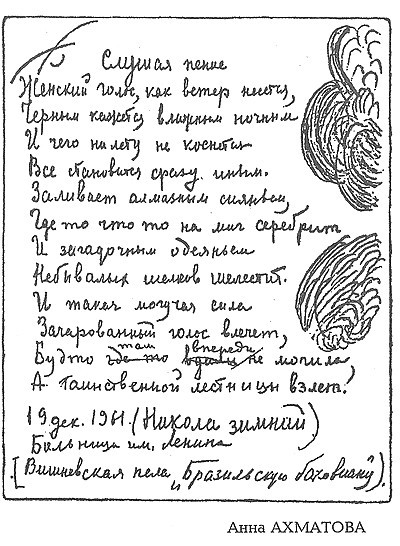 Слушая пение
Женский голос, как ветер несется,
Черным кажется влажным ночным
И чего на лету не коснется
Все становится сразу иным.
Заливает алмазным сияньем,
Где то что то на миг серебрит
И загадочным одеяньем
Небывалых шелков шелестит.
И такая могучая сила
Зачарованный голос влечет,
там впереди
Будто где то вдали не могила,
А таинственной лестницы взлет.
19 дек. 1961. (Никола зимний)
Больница им. Ленина
[Вишневская пела „Бразильскую бахиану").
Анна АХМАТОВА